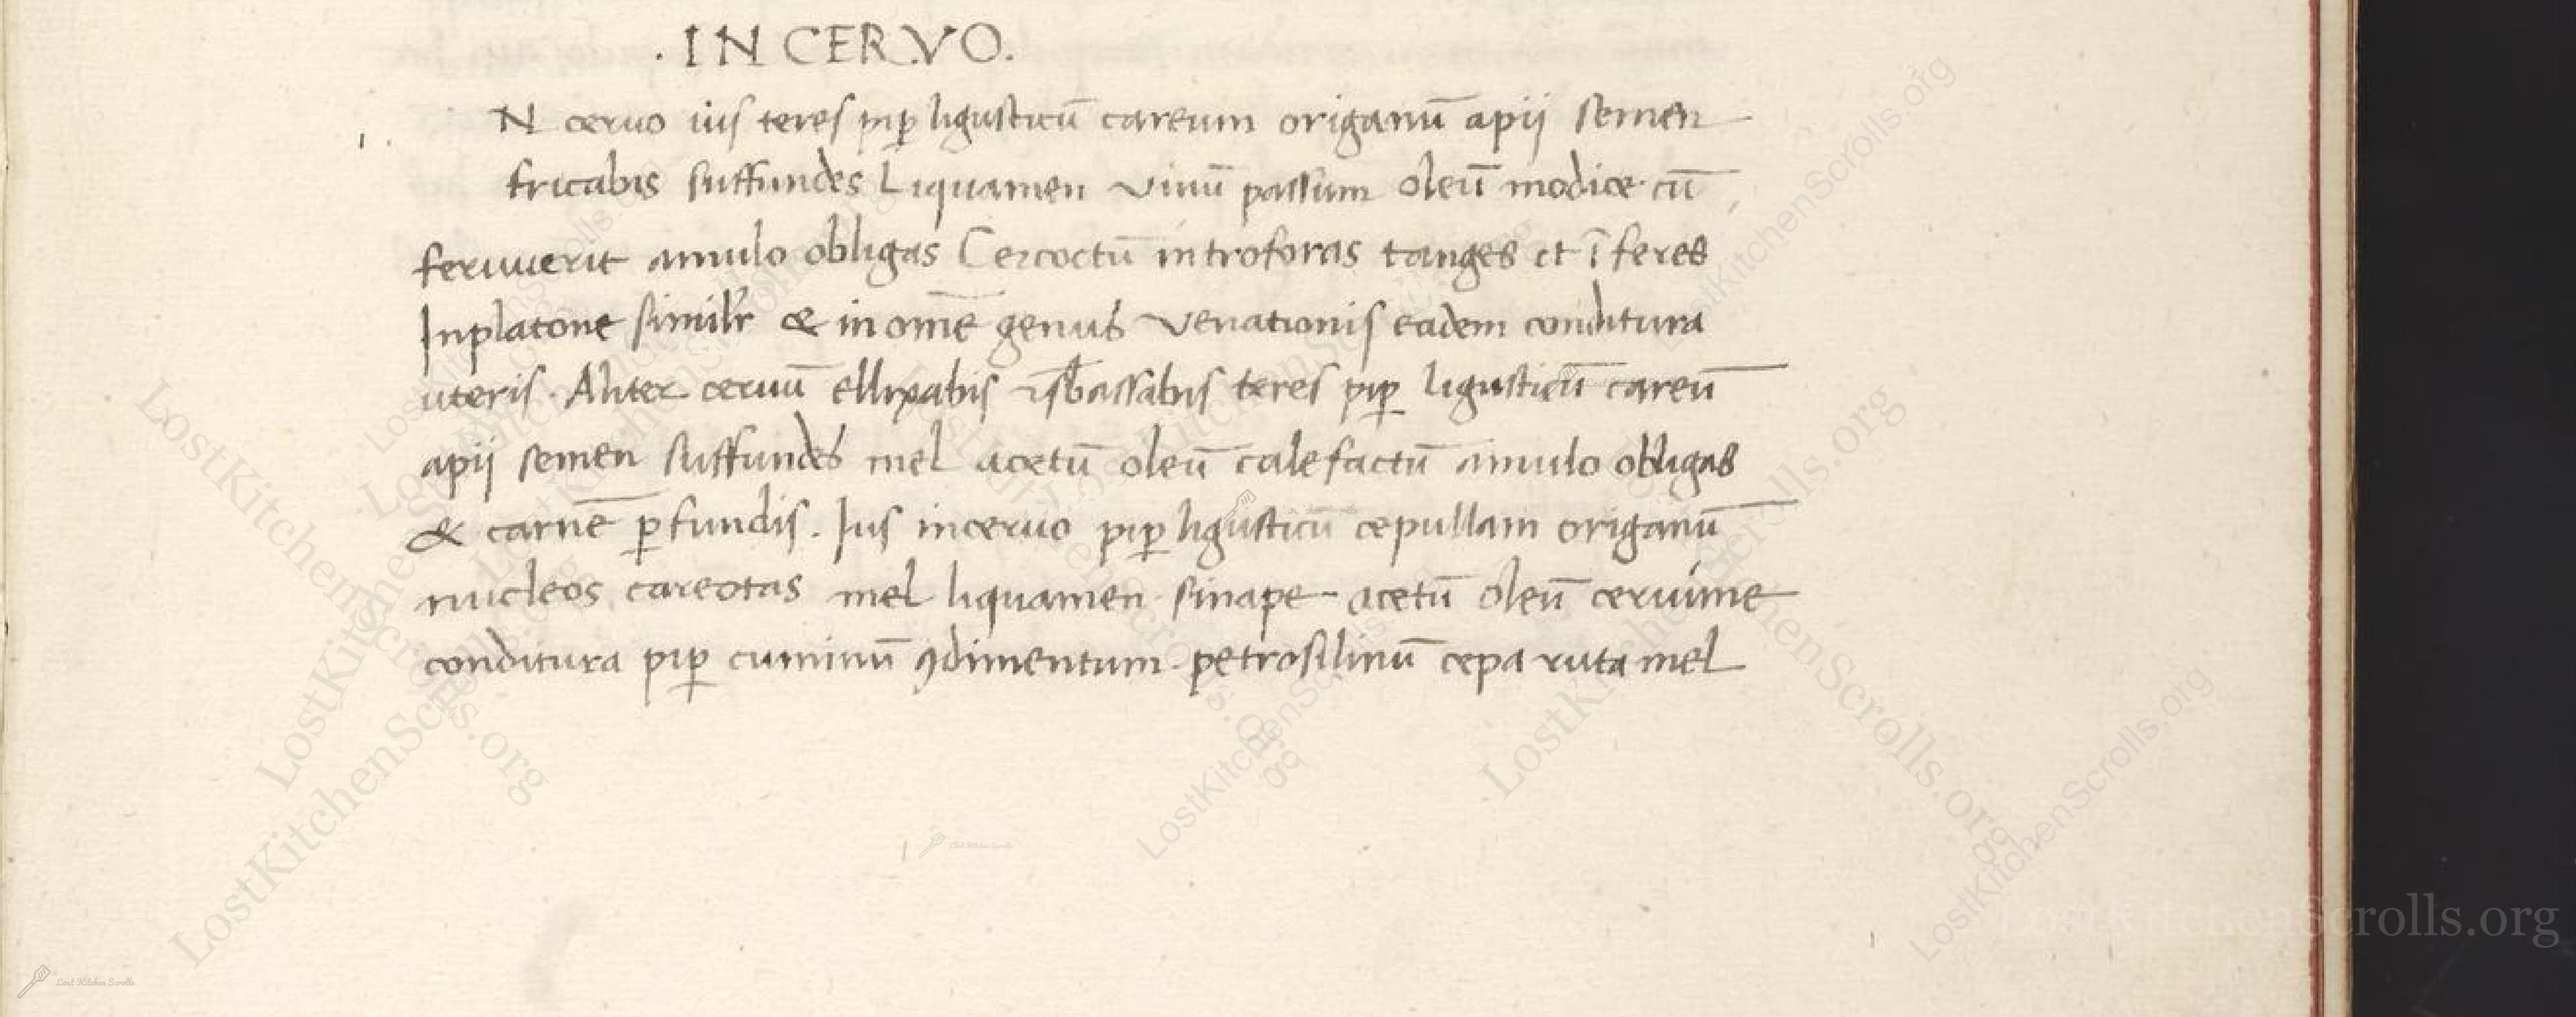 . IN CERVO.
N ceruo ius teres pip ligusticū careum origanū apij semen
fricabis suffundes Liquamen vinū passum oleū modice cū
feruuerit amulo obligas Ceruoctū introforas tanges et ī feres
Inplatone similr & in omē genus venationis eadem conditura
uteris. Aliter ceruū elixabis assabis teres pip ligusticū careū
apij semen suffundes mel acetū oleū calefactū amulo obligas
& carnē pfundis. Ius inceruo pip ligusticū cepullam origanū
nucleos careotas mel liquamen sinape acetū oleū ceruine
conditura pip cuminū ꝯdimentum petrosilinū cepa ruta mel
LostKitchenScrolls.org
Lost Kitchen Scrolls